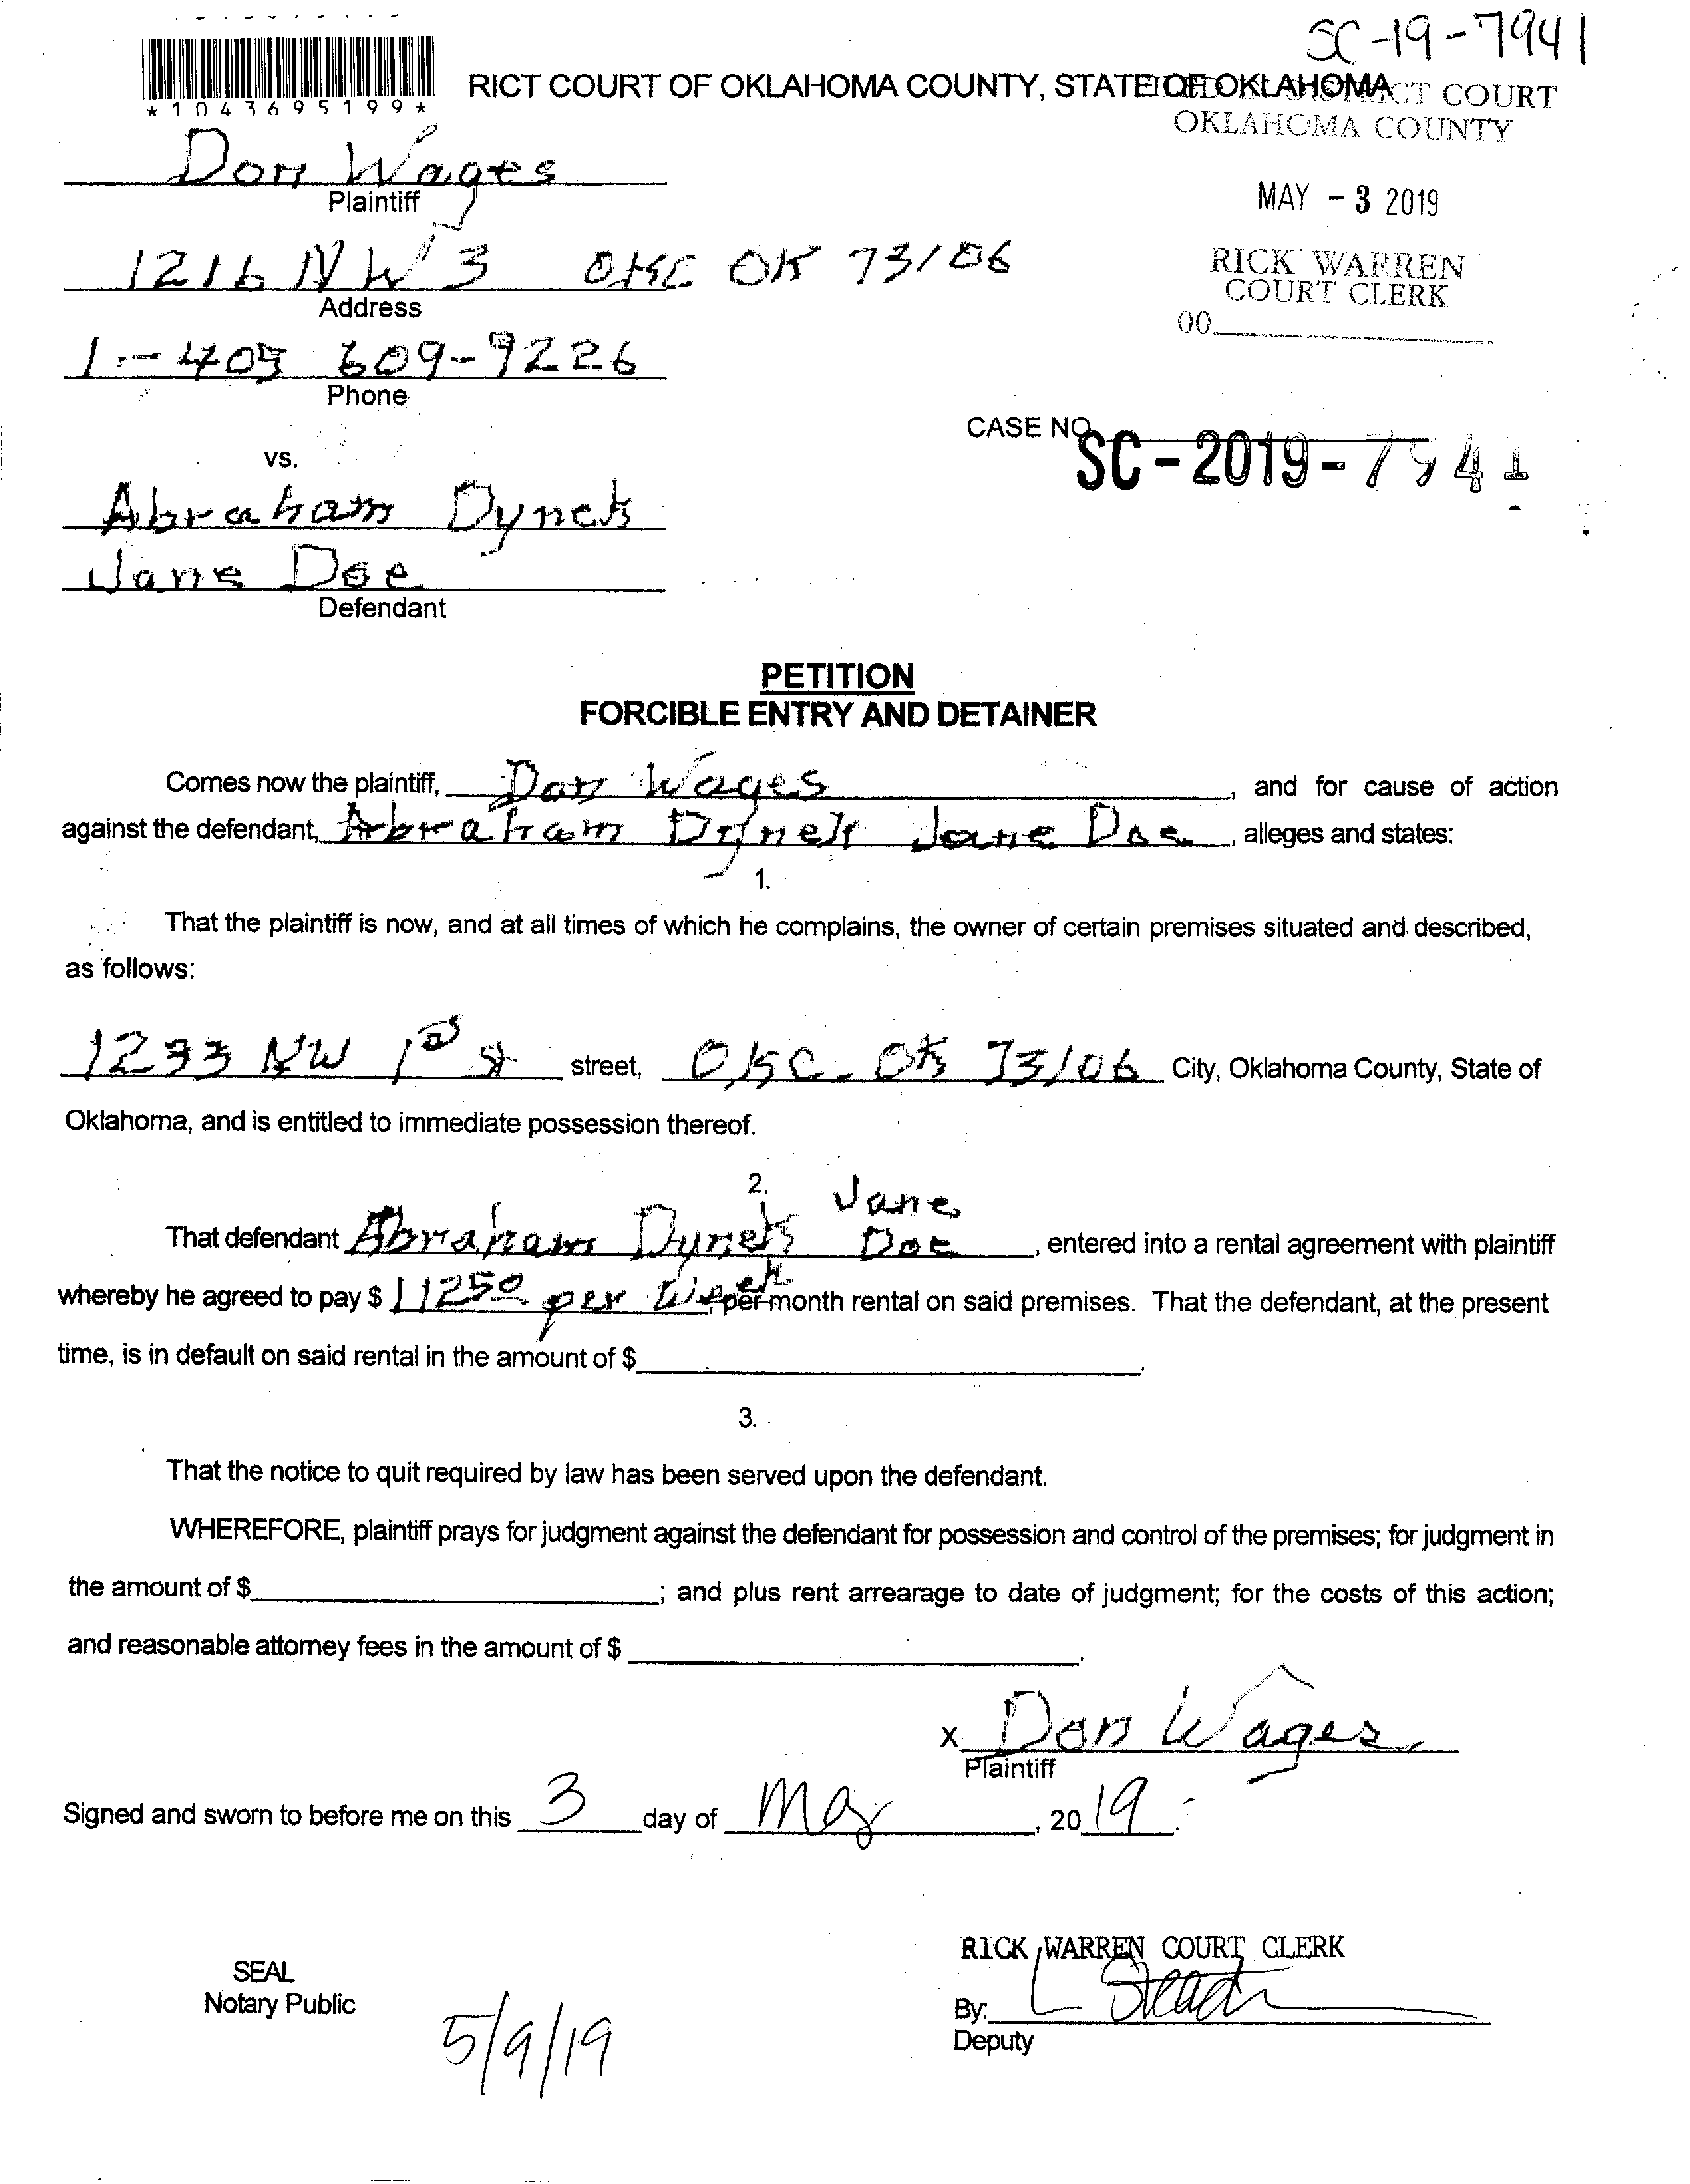 SC-19-7941
*1043695199*
RICT COURT OF OKLAHOMA COUNTY, STATE OF OKLAHOMA
COURT
OKLAHOMA COUNTY
Don Wages
Plaintiff
MAY - 3 2019
1216 NW 3 OKC OK 73106
Address
RICK WARREN
COURT CLERK
00
1-405 609-9226
Phone
CASE NO.
SC-2019-7941
vs.
Abraham
Jane Doe
Defendant
PETITION
FORCIBLE ENTRY AND DETAINER
Comes now the plaintiff, Don Wages, and for cause of action
against the defendant, Abraham Jane Doe, alleges and states:
1.
That the plaintiff is now, and at all times of which he complains, the owner of certain premises situated and described,
as follows:
1233 NW 1st St street, OKC. OK 73106 City, Oklahoma County, State of
Oklahoma, and is entitled to immediate possession thereof.
2.
Jane
That defendant Abraham Doe, entered into a rental agreement with plaintiff
whereby he agreed to pay $ per Week per month rental on said premises. That the defendant, at the present
time, is in default on said rental in the amount of $
3.
That the notice to quit required by law has been served upon the defendant.
WHEREFORE, plaintiff prays for judgment against the defendant for possession and control of the premises; for judgment in
the amount of $; and plus rent arrearage to date of judgment; for the costs of this action;
and reasonable attorney fees in the amount of $.
x Don Wages
Plaintiff
Signed and sworn to before me on this 3 day of May, 2019.
RICK WARREN COURT CLERK
SEAL
Notary Public
By:
Deputy
5/9/19